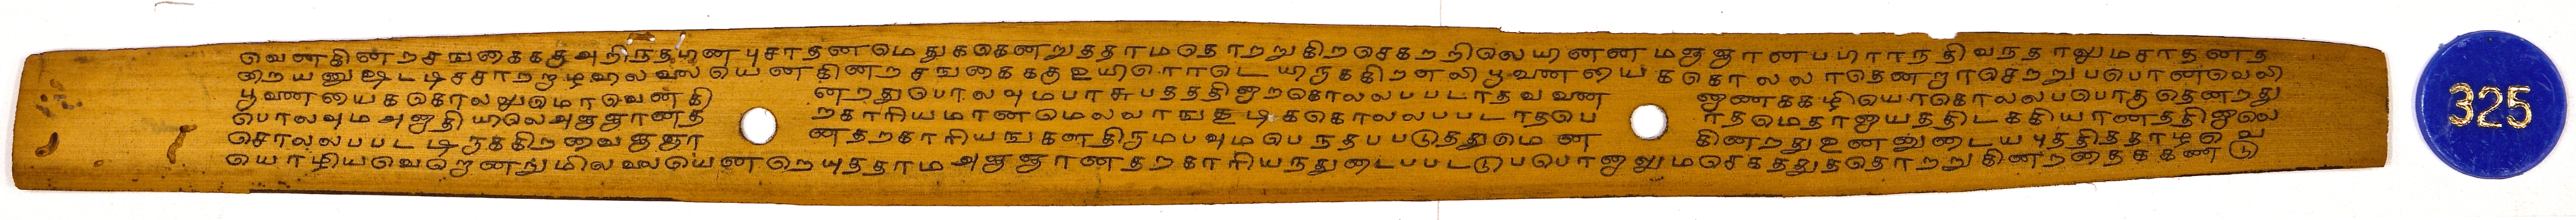 வெனகினறசஙகைககுஅறிநதமுனபுசாதனமெதுககெனறுததாமதொறறுகிறசெகறறிலெயுனனமஞஞானபபிராநதிவநதாலுமசாதனத
றையனுஷடடிசசாறறுழிலலையெனகினறசஙகைககுஉயுரொடெயிருககிறளலிபூவணயைககொலலாதெனறாசெறறுபபொனவெலி
பூவணயைககொலலுமொவெனகி னறதுபொலவுமபாசுபதததிஞறகொலலபபடாதவவண ணுணககழியொகொலலபபொகுதெனறது
பொலவுமஅஞதியாலெஅஞஞானத றகாரியமானமெலலாஙகடிககொலலபபடாதபெ ரதமெதாஞயததிடசகதியானததிஞலெ
கொலலபபடடிருககிறவைஞஞா னதறகாரியஙகளதிருமபவுமபெநதபபடுததுமென கினறதுஉனனுடையபுததிததாழவெ
யொழியவெறெணறுமிலலையெனறெயுததாமஅஞஞானதறகாரியநதுடைபபடடுபபொனலுமசெகததுததொறறுகினறதைககணடு
325